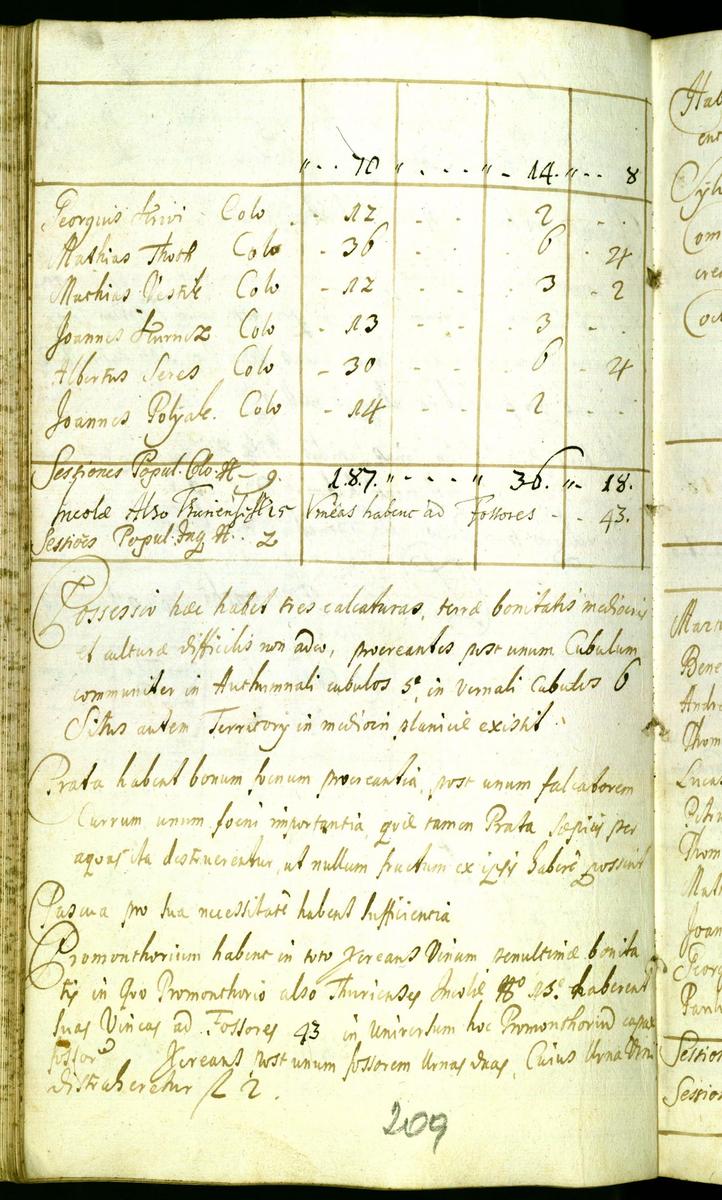 " - - 70 " - - - " - 14 " - - 8
Georgius Krivi Colo - - 12 - - - 2 - -
Mathias Thott Colo - 36 - - - 6 - 4
Mathias Vestik Colo - 12 - - - 3 - 2
Joannes Kurucz Colo - 13 - - - 3 - -
Albertus Seres Colo - 30 - - - 6 - 4
Joannes Polyak Colo - 14 - - - 2 - -
Sessiones Popul. Colo. N - 9. 187. " - - - - " 36. " - 18.
Incolæ Also Thuriensis N 15 Vineas habent ad Fossores - - 43.
Sessiões Popul. Inq N. . 2
Possessio hæc habet tres calcaturas, terræ bonitatis mediocris
et culturæ difficilis non adeo, procreantes post unum Cubulum
communiter in Authumnali cubulos 5. in vernali Cubulos 6
Situs autem Territorij in mediocri planicie existit.
Prata habent bonum foenum procreantia, post unum falcatorem
Currum unum foeni importantia, quæ tamen Prata sæpius per
aquas ita destruerentur, ut nullum fructum ex ipsis habere possint
Pascua pro sua necessitate habent sufficientia
Promonthorium habent in toto procreans Vinum penultimæ bonita
tis in quo Promonthorio also Thurienses Incolæ No 15. haberent
suas Vineas ad Fossores 43 in universum hoc Promonthoriū capax
fossorū Procreans post unum fossorem Urnas duas, Cuius Urna Vini
distraheretur f 2.
209
Hab
ent
Com
cre
Bene
Andre
Thom
Lucas
Petru
Thom
Math
Joan
Georg
Paul
Session
Session